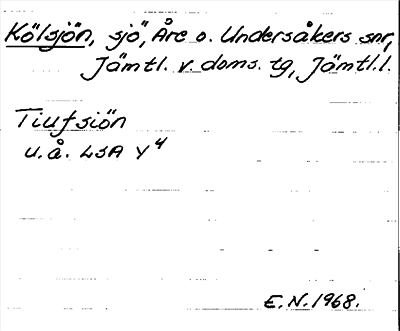 Kölsjön, sjö, Åre o. Undersåkers snr,
Jämtl. v. doms. tg, Jämtl.l.
Tiufsiön
u.å. LSA Y4
E.N. 1968.